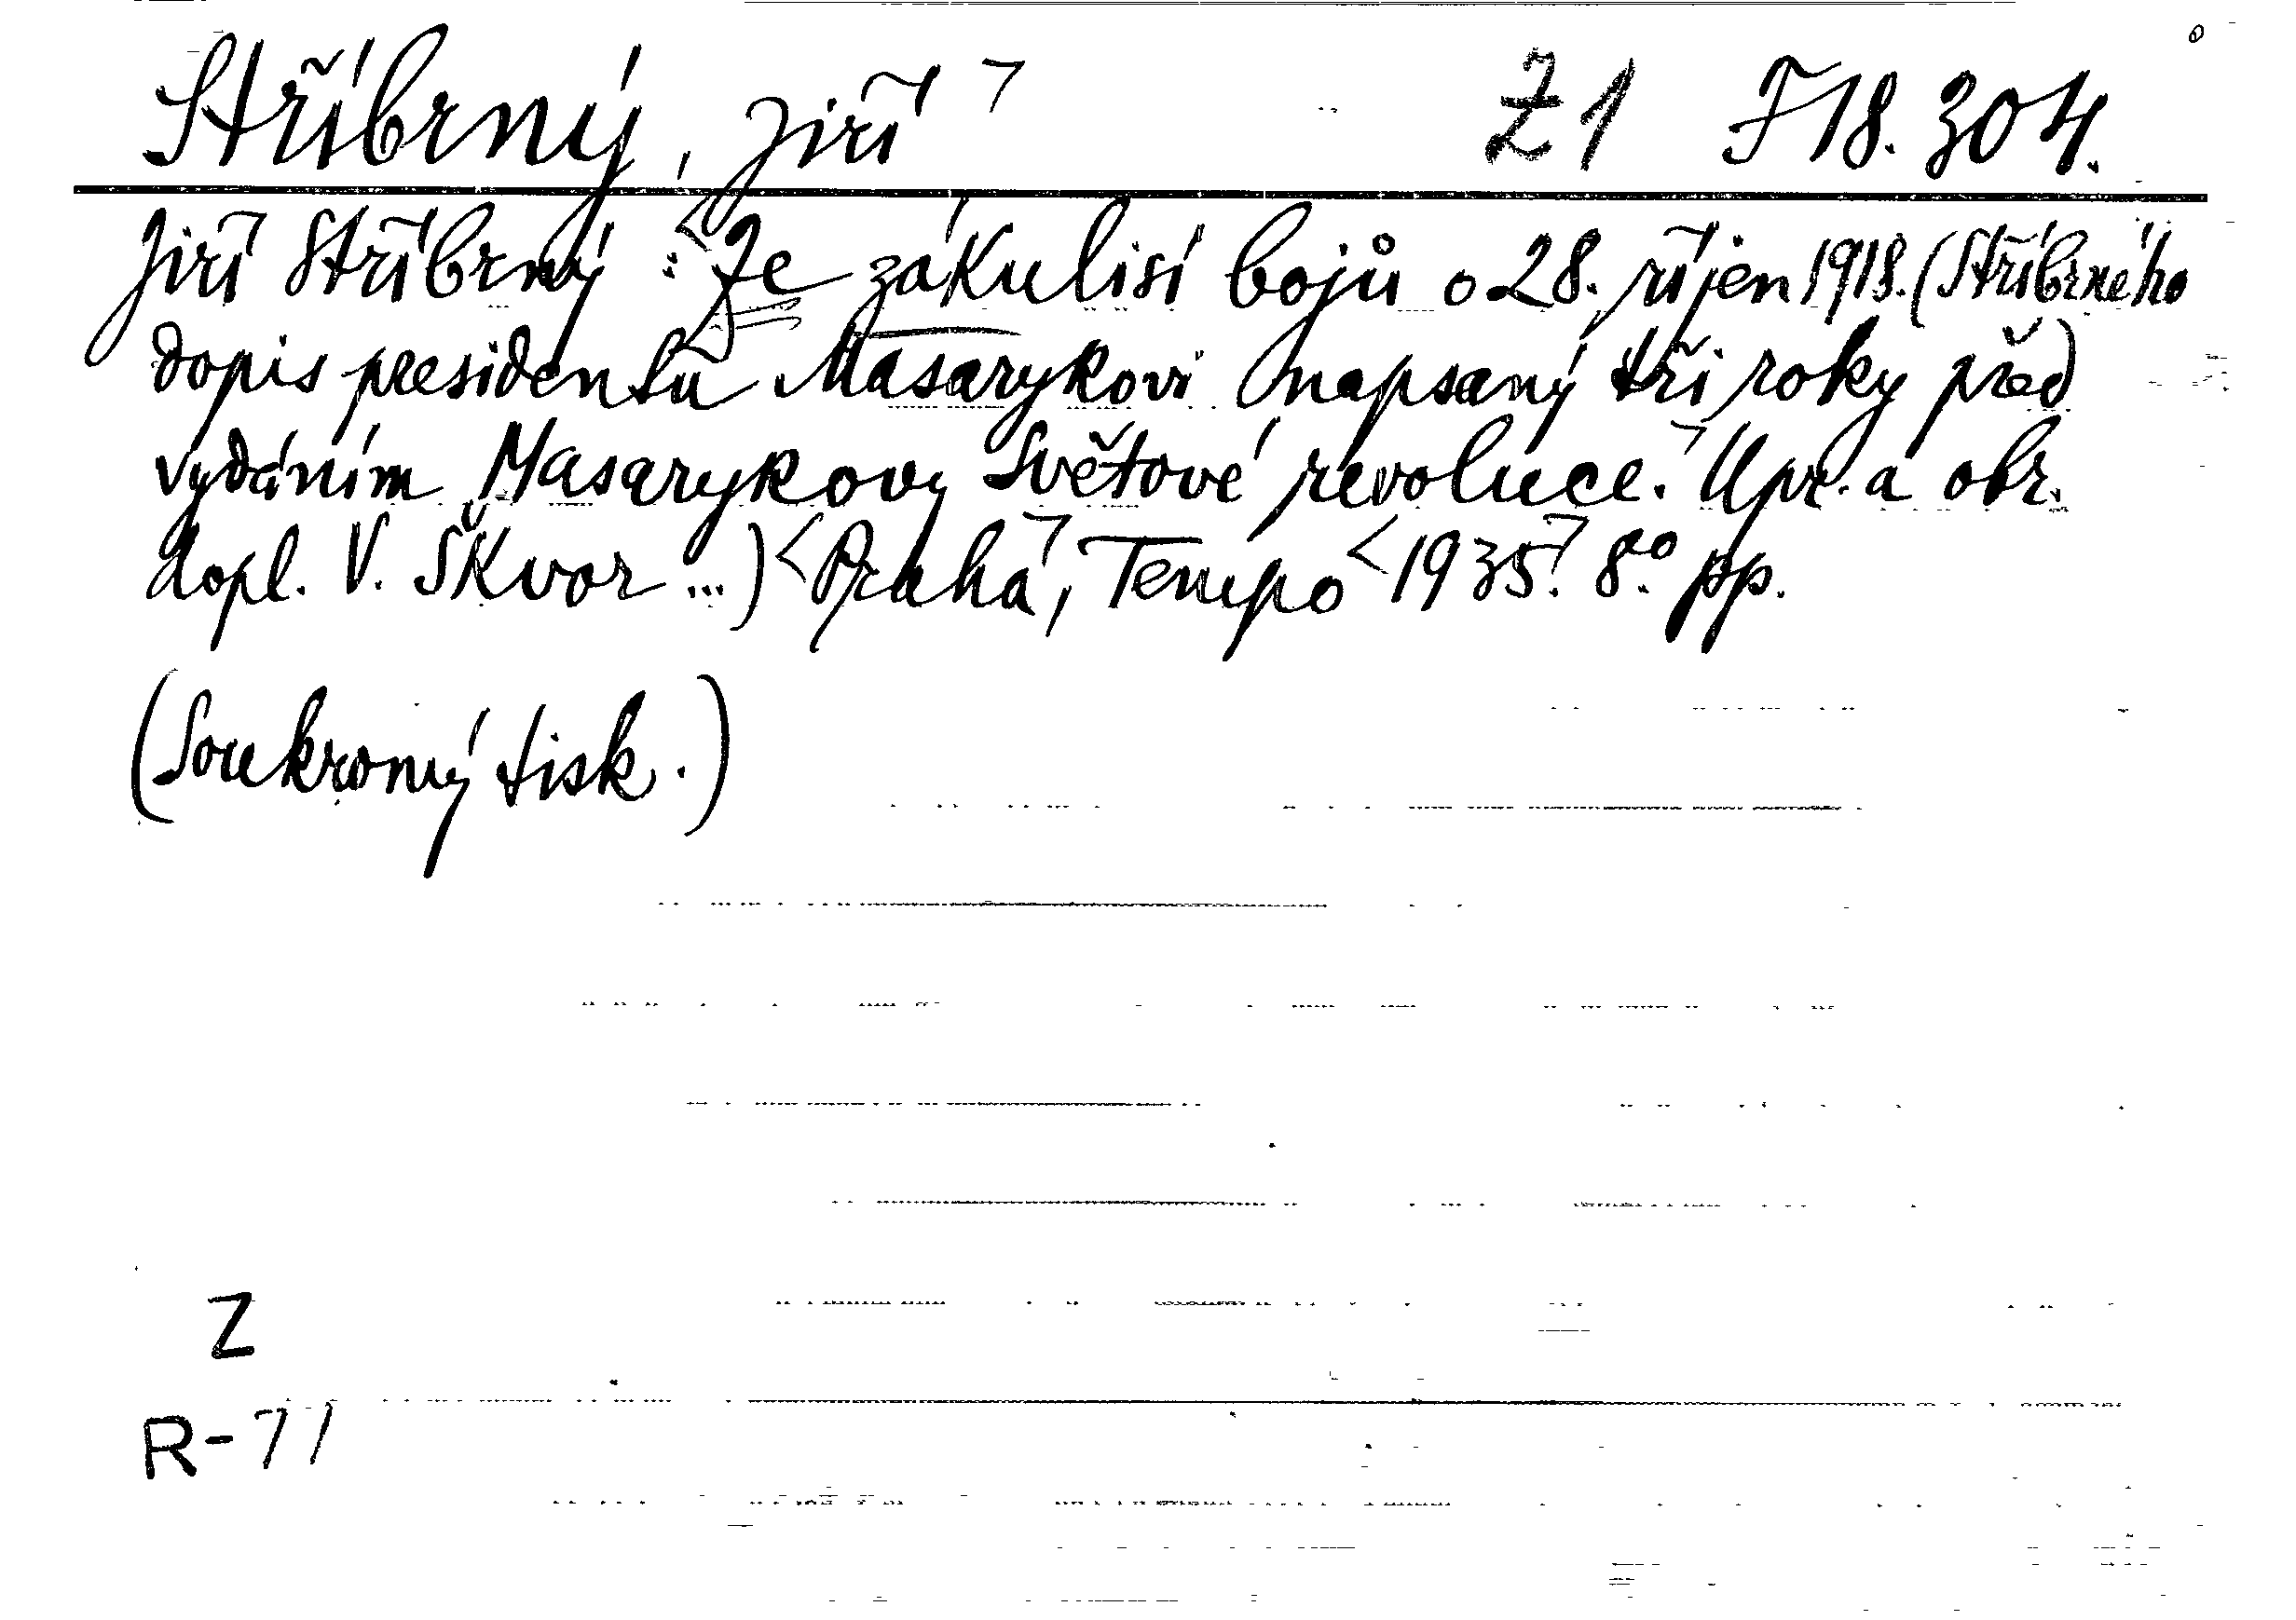 Stříbrný, Jiří Z1 F 18.304.
Jiří Stříbrný: Ze zákulisí bojů o 28. říjen 1918. (Stříbrného
dopis presidentu Masarykovi napsaný tři roky před
vydáním Masarykovy Světové revoluce. Upr. a obr.
dopl. V. Škvor ...) Praha, Tempo 1935. 8° pp.
(Soukromý tisk.)
Z
R-71